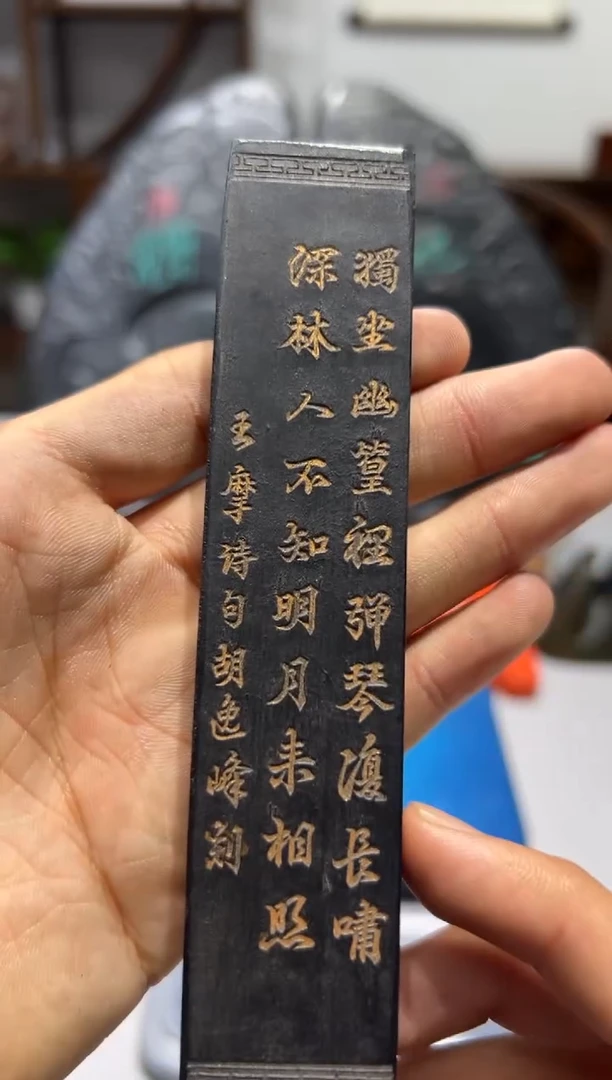 獨坐幽篁裡弹琴復長嘯
深林人不知明月来相照
王摩诗句胡逸峰